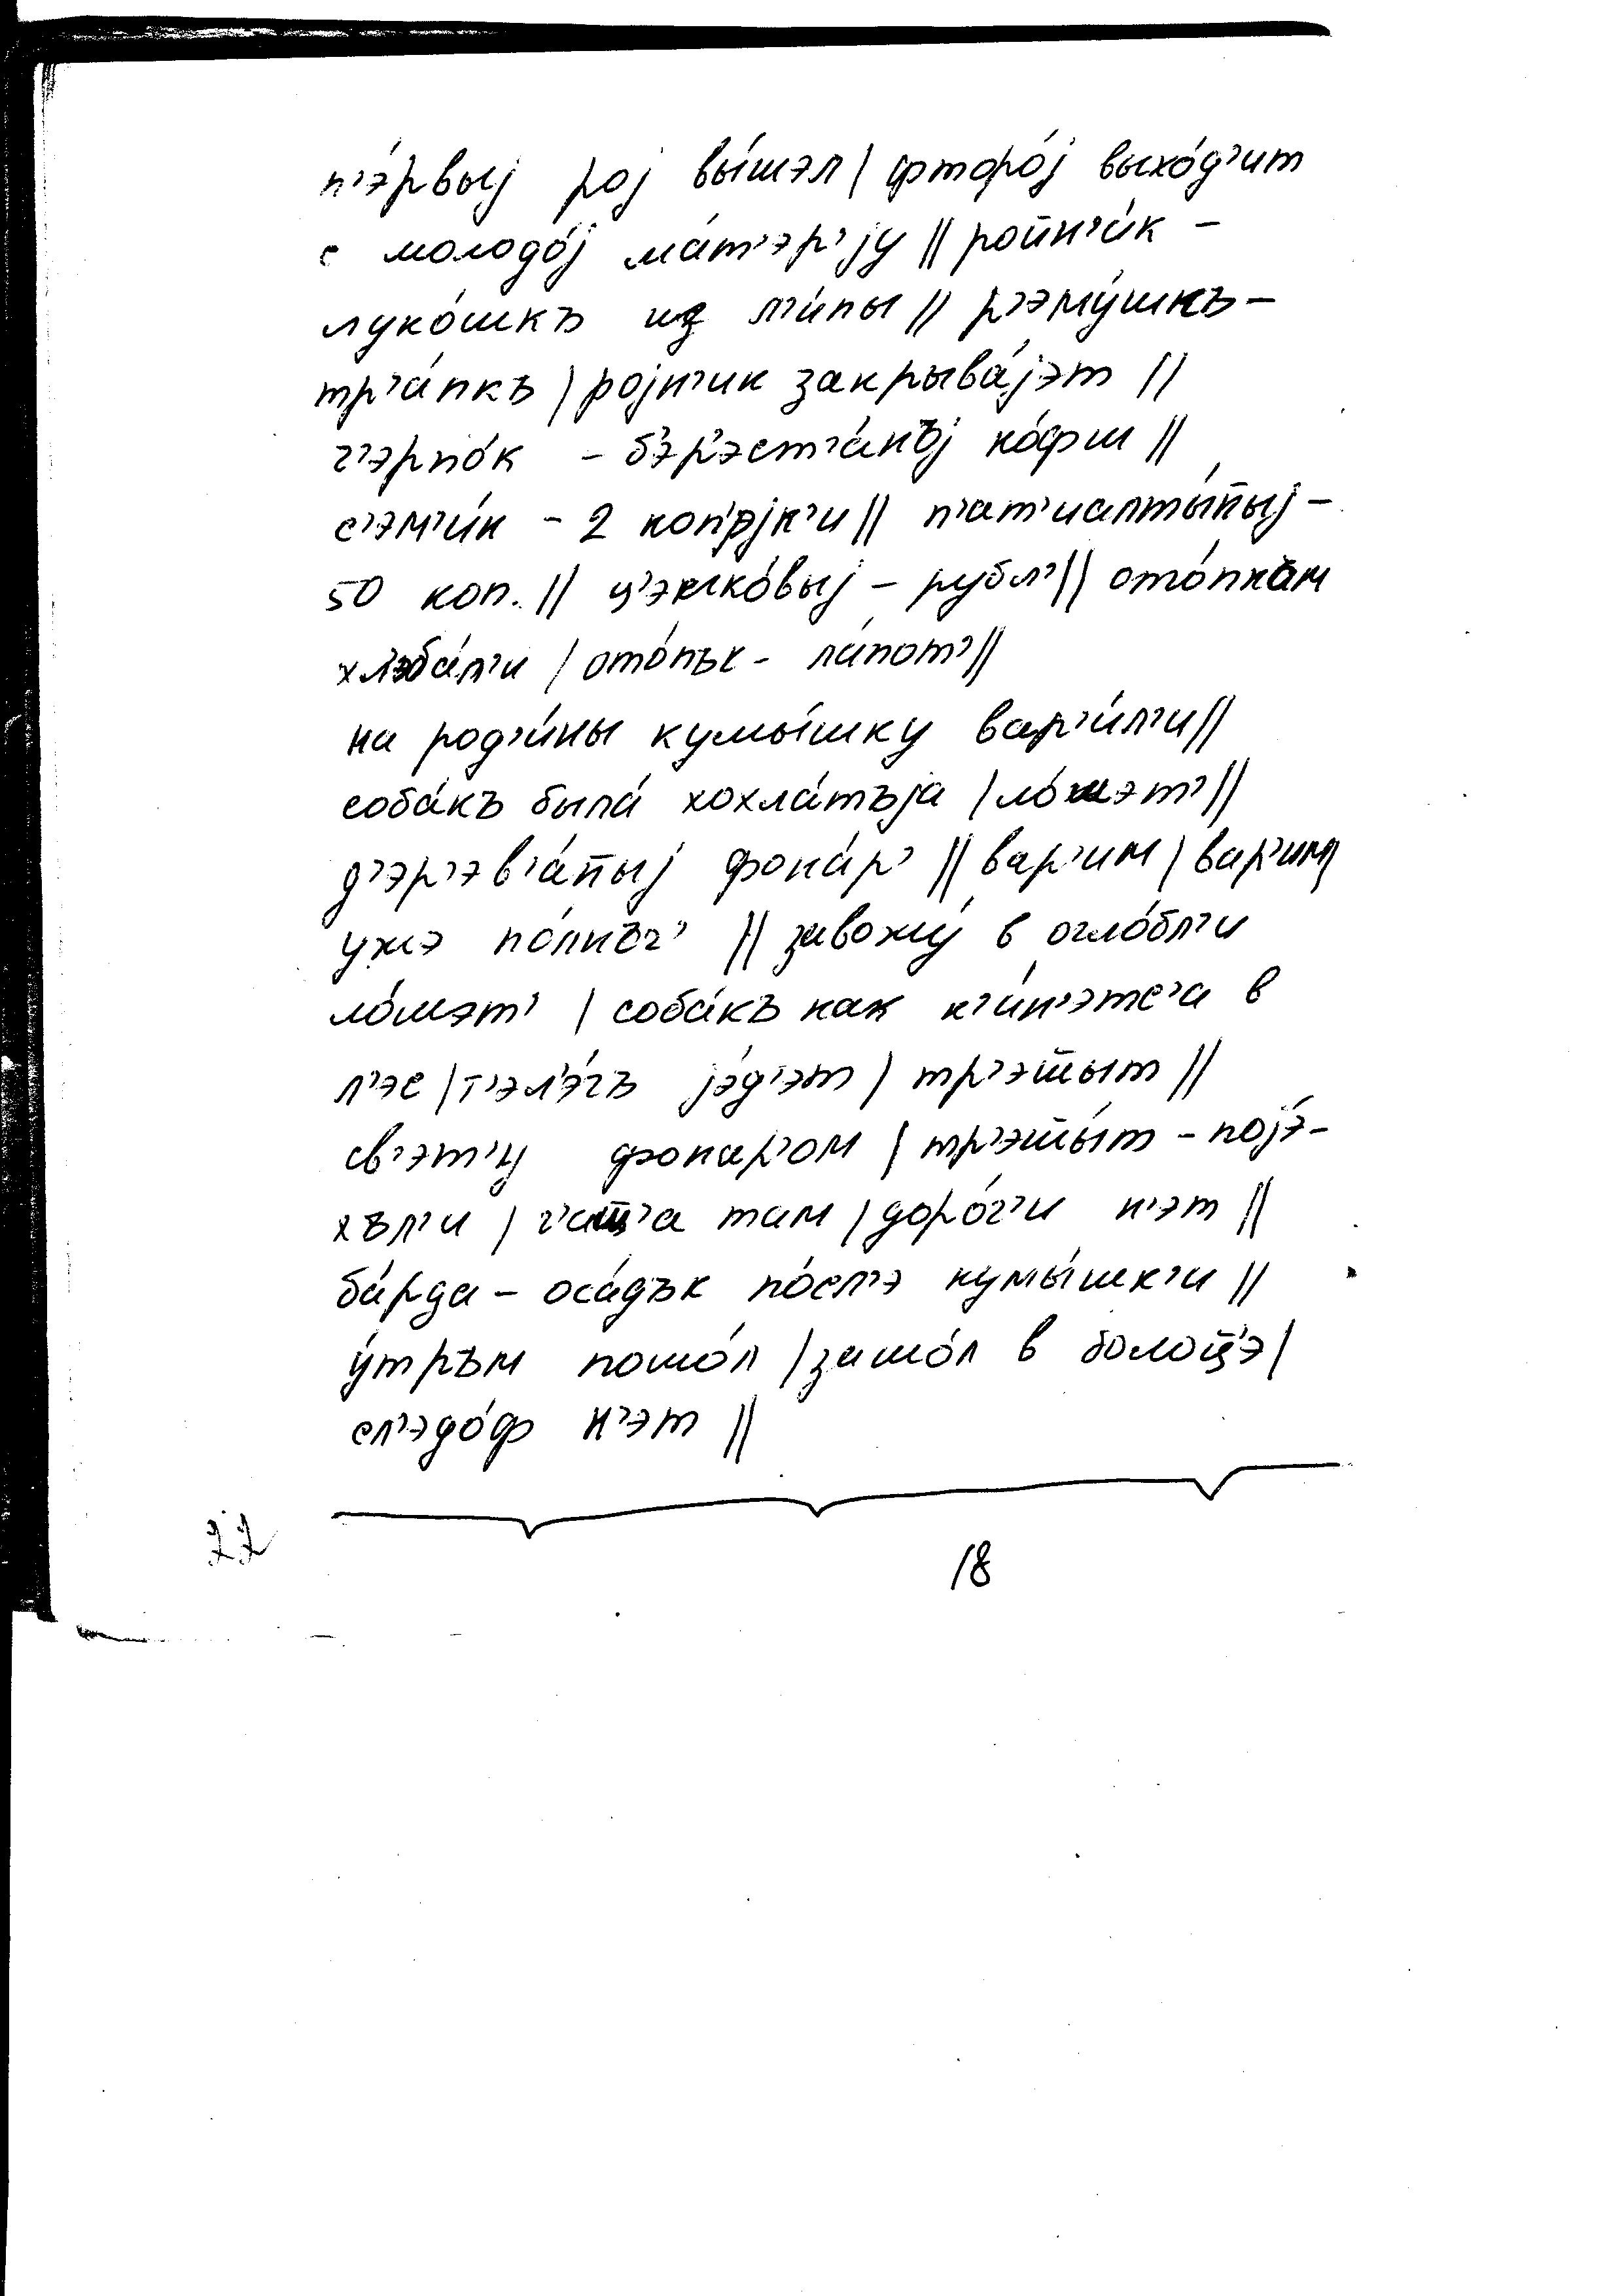 п'э́рвыj роj вы́шэл | фторо́j выхо́д'ит
с молодо́j ма́т'эр'jу || ройн'и́к –
луко́шкъ из л'и́пы || р'эму́шкъ –
тр'а́пкъ | роjн'ик закрыва́jэт ||
ч'эрпо́к – б'эр'эст'а́н̄ъj ко́фш ||
с'эм'и́к – 2 коп'э́jк'и || п'ат'иалты́н̄ыj –
50 коп. || ц'элко́выj – рубл' || ото́пкам
хл'эба́л'и | ото́пък – ла́пот' ||
на род'и́ны кумы́шку вар'и́л'и ||
соба́къ была́ хохла́тъjа | ло́шэт' ||
д'эр'эв'а́н̄ыj фона́р' || вар'им | вар'им
ужэ по́лнъч' || завожу́ в огло́бл'и
ло́шэт' | соба́къ как к'и́н'этс'а в
л'эс | т'эл'э́гъ jэ́д'эт | тр'эш̄ыт ||
св'эт'ц фонар'ом | тр'эш̄ы́т – поjэ́-
хъл'и | ч'ащ'а там | доро́г'и н'эт ||
ба́рда – оса́дък по́сл'э кумы́шк'и ||
у́тръм пошо́л | зашо́л в болоц̄'э |
сл'эдо́ф н'эт ||
22
18